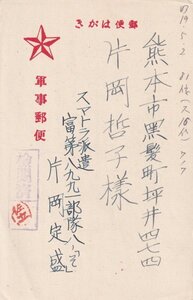 郵便はがき
軍事郵便
熊本市黒髪町坪井四七四
片岡哲子様
スマトラ派遣
富第八九九一部隊八
片岡定盛